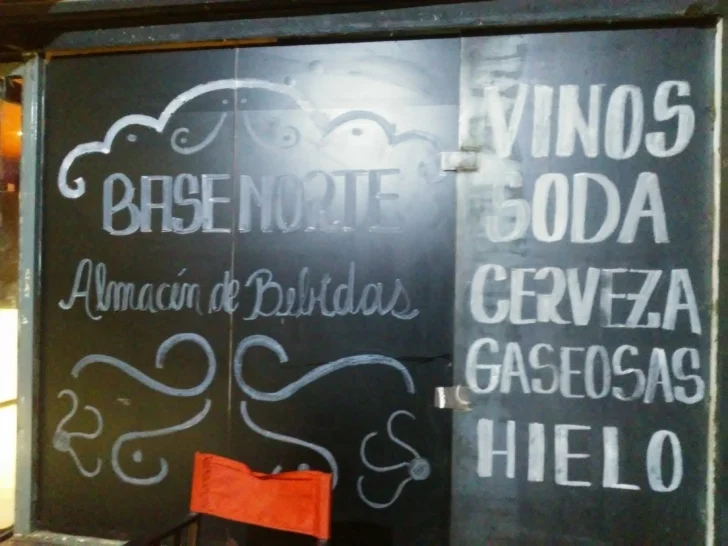 BASE NORTE
Almacén de Bebidas
VINOS
SODA
CERVEZA
GASEOSAS
HIELO